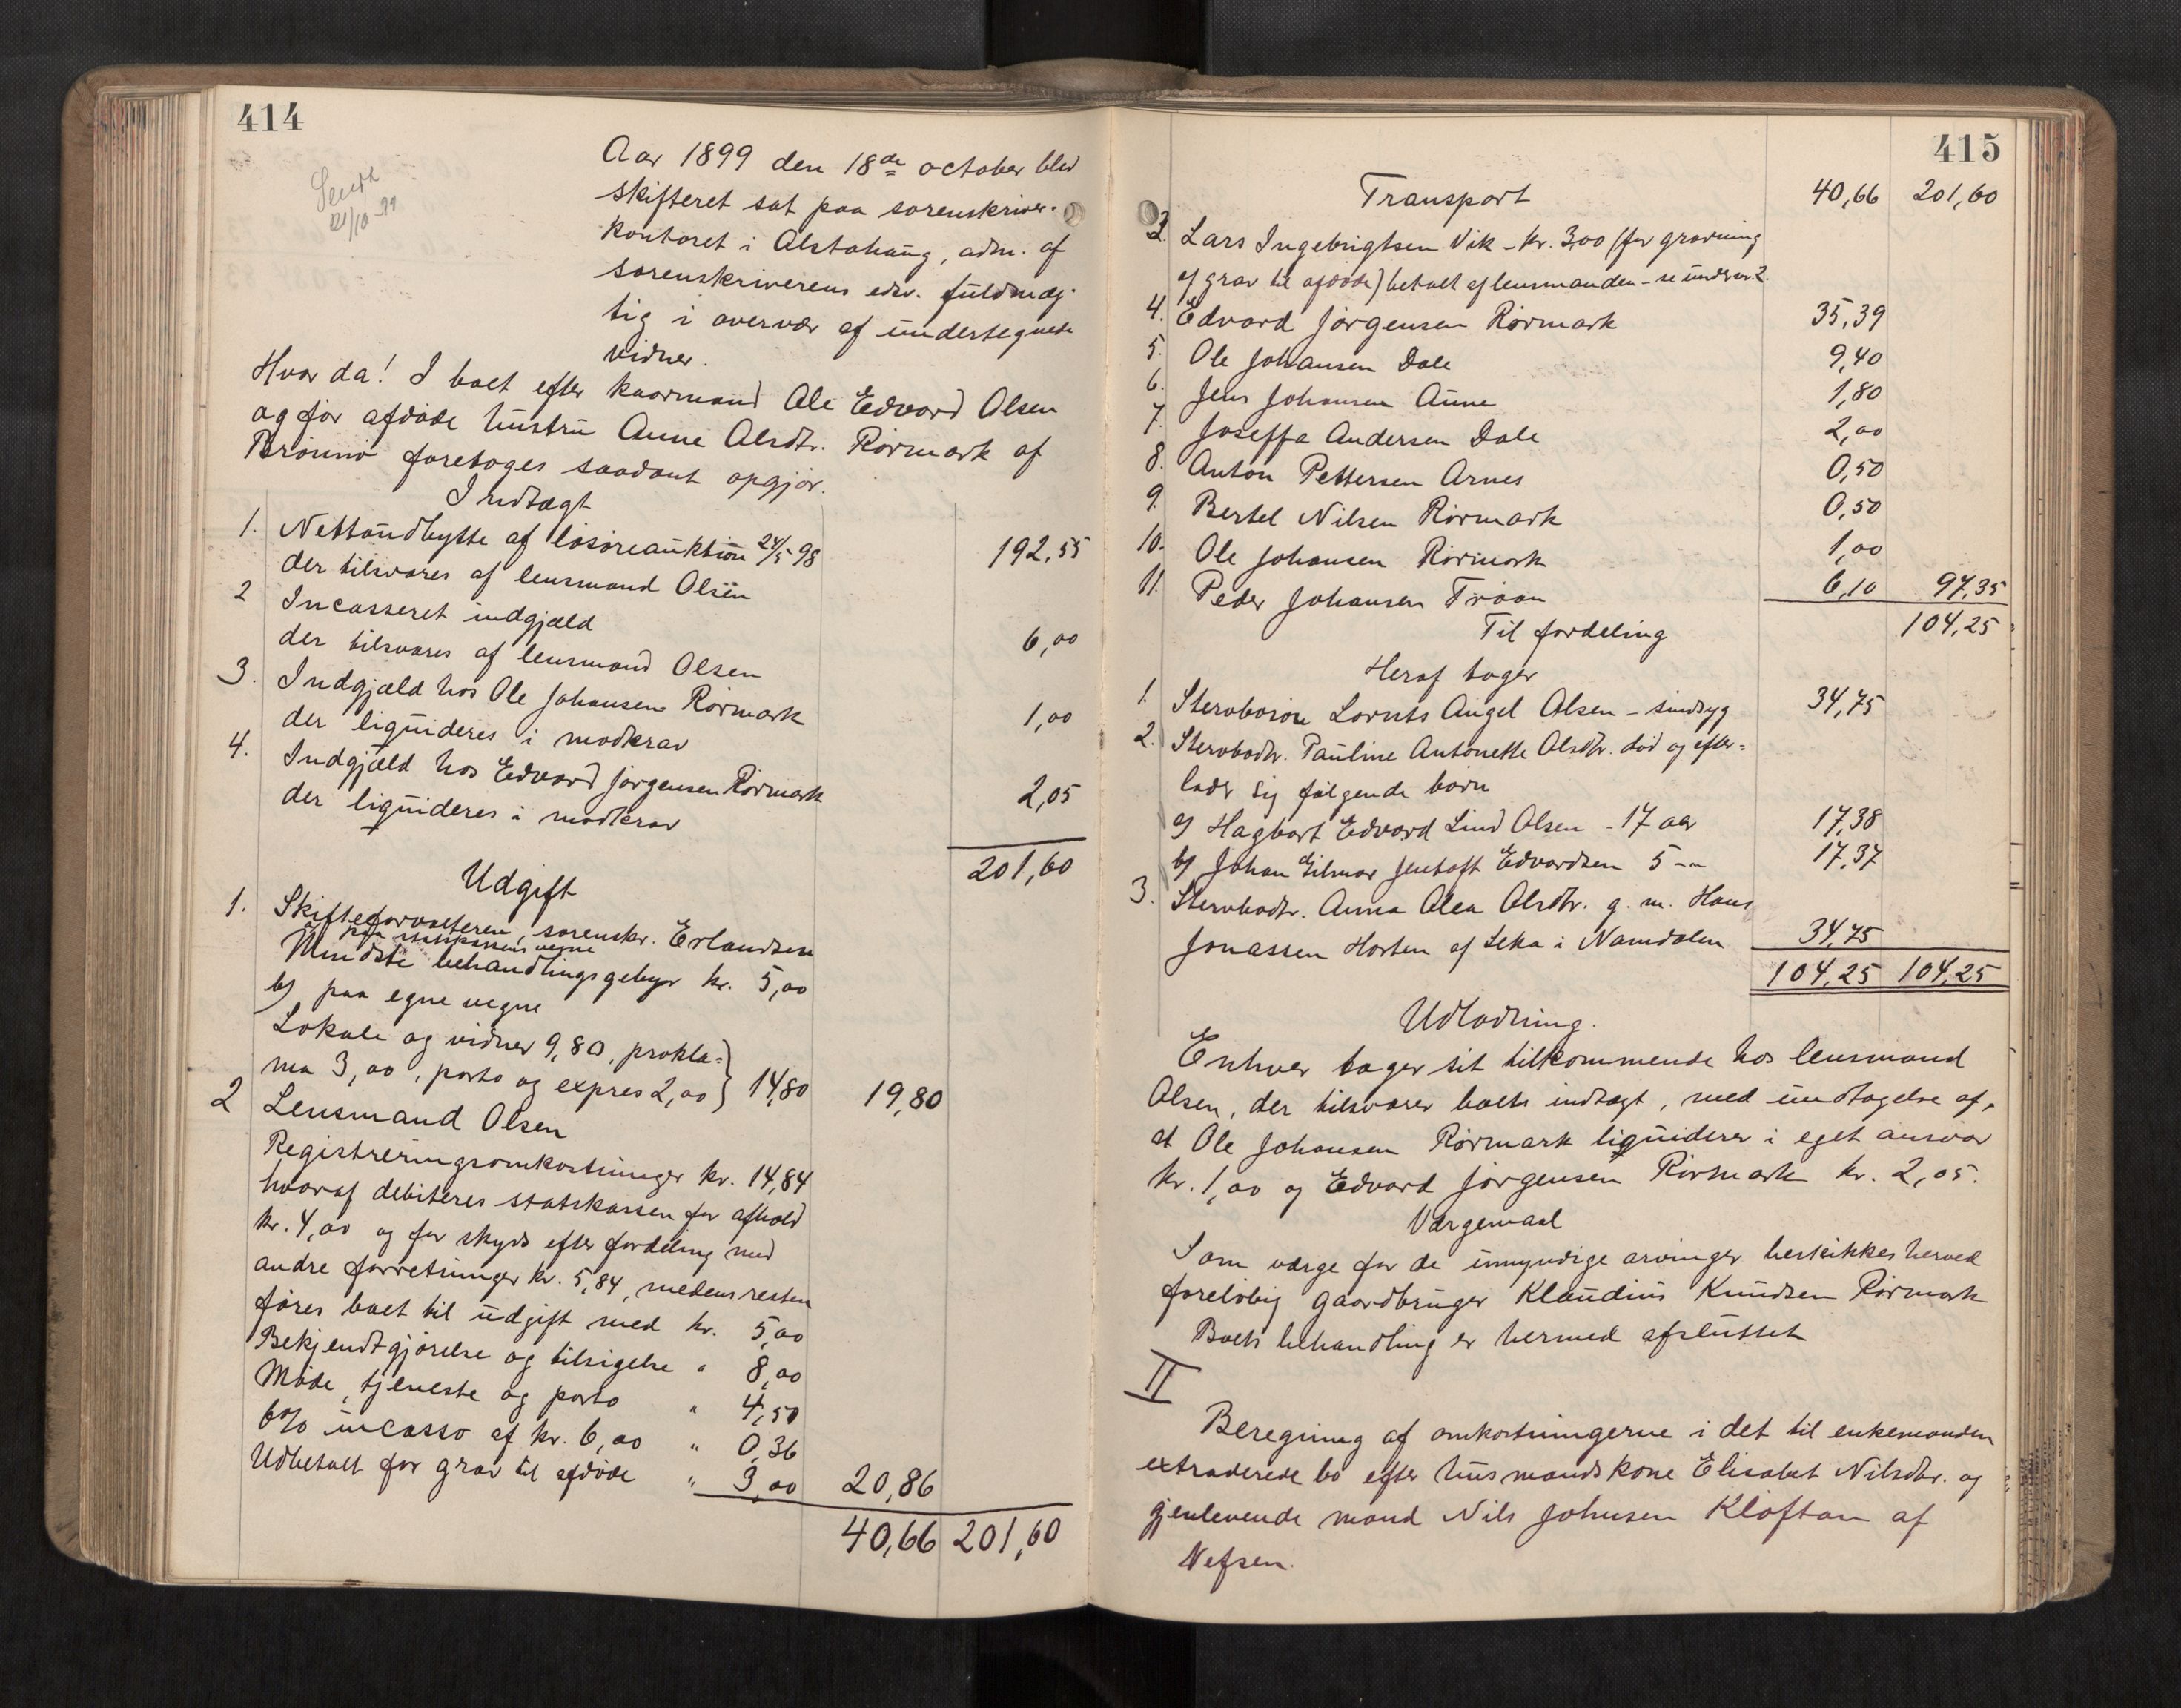 414
Sendt
21/10-99
Aar 1899 den 18de october blev
skifteret sat paa sorenskriver-
kontoret i Alstahaug, adm. af
sorenskriverens edsv. fuldmæg-
tig i overvær af undertegnede
vidner.
Hvor da! I boet efter kaarmand Ole Edvard Olsen
og før afdøde hustru Anne Olsdtr. Rørmark af
Brønnø foretages saadant opgjør.
Indtægt
1. Nettoudbytte af løsøreauktion 24/5 98
der tilsvares af lensmand Olsen 192,55
2 Incasseret indgjæld
der tilsvares af lensmand Olsen 6,00
3. Indgjæld hos Ole Johansen Rørmark
der liquideres i modkrav 1,00
4. Indgjæld hos Edvard Jørgensen Rørmark
der liquideres i modkrav 2,05
201,60
Udgift
1. Skifteforvalteren, sorenskr. Erlandsen
a) paa statskassens vegne
Mindste behandlingsgebyr kr. 5,00
b) paa egne vegne
Lokale og vidner 9,80, prokla=
ma 3,00, porto og expres 2,00} 14,80 19,80
2 Lensmand Olsen
Registreringsomkostninger kr. 14,84
hvoraf debiteres statskassen for afhold
kr. 4,00 og for skyds efter fordeling med
andre forretninger kr. 5,84, medens resten
føres boet til udgift med kr. 5,00
Bekjendtgjørelse og tilsigelse " 8,00
Møde, tjeneste og porto " 4,50
6% incasso af kr. 6,00 " 0,36
Udbetalt for grav til afdøde " 3,00 20,86
40,66 201,60
415
Transport 40,66 201,60
3. Lars Ingebrigtsen Vik - kr. 3,00 (for gravning
af grav til afdøde) betalt af lensmanden - se under nr. 2.
4. Edvard Jørgensen Rørmark 35,39
5. Ole Johansen Dale 9,40
6. Jens Johansen Aune 1,80
7. Joseffa Andersen Dale 2,00
8. Anton Pettersen Arnes 0,50
9. Bertel Nilsen Rørmark 0,50
10. Ole Johansen Rørmark 1,00
11. Peder Johansen Trøan 6,10 97,35
Til fordeling 104,25
Heraf tager
1. Stervbosøn Lornts Angel Olsen - sindsyg 34,75
2. Stervbodtr. Pauline Antonette Olsdtr. død og efter=
lader sig følgende børn
a) Hagbart Edvard Lind Olsen - 17 aar 17,38
b) Johan Hilmar Jentoft Edvardsen 5 - " 17,37
3. Stervbodtr. Anna Olea Olsdtr. g. m. Hans
Jonassen Horten af Leka i Namdalen 34,75
104,25 104,25
Udlodning.
Enhver tager sit tilkommende hos lensmand
Olsen, der tilsvarer boets indtægt, med undtagelse af,
at Ole Johansen Rørmark liquiderer i eget ansvar
kr. 1,00 og Edvard Jørgensen Rørmark kr. 2,05.
Værgemaal
Som værge for de umyndige arvinger beskikkes herved
foreløbig gaardbruger Klaudius Knudsen Rørmark
Boets behandling er hermed afsluttet
II
Beregning af omkostningerne i det til enkemanden
extraderede bo efter husmandskone Elisabet Nilsdtr. og
gjenlevende mand Nils Johnsen Kløftan af
Vefsen.